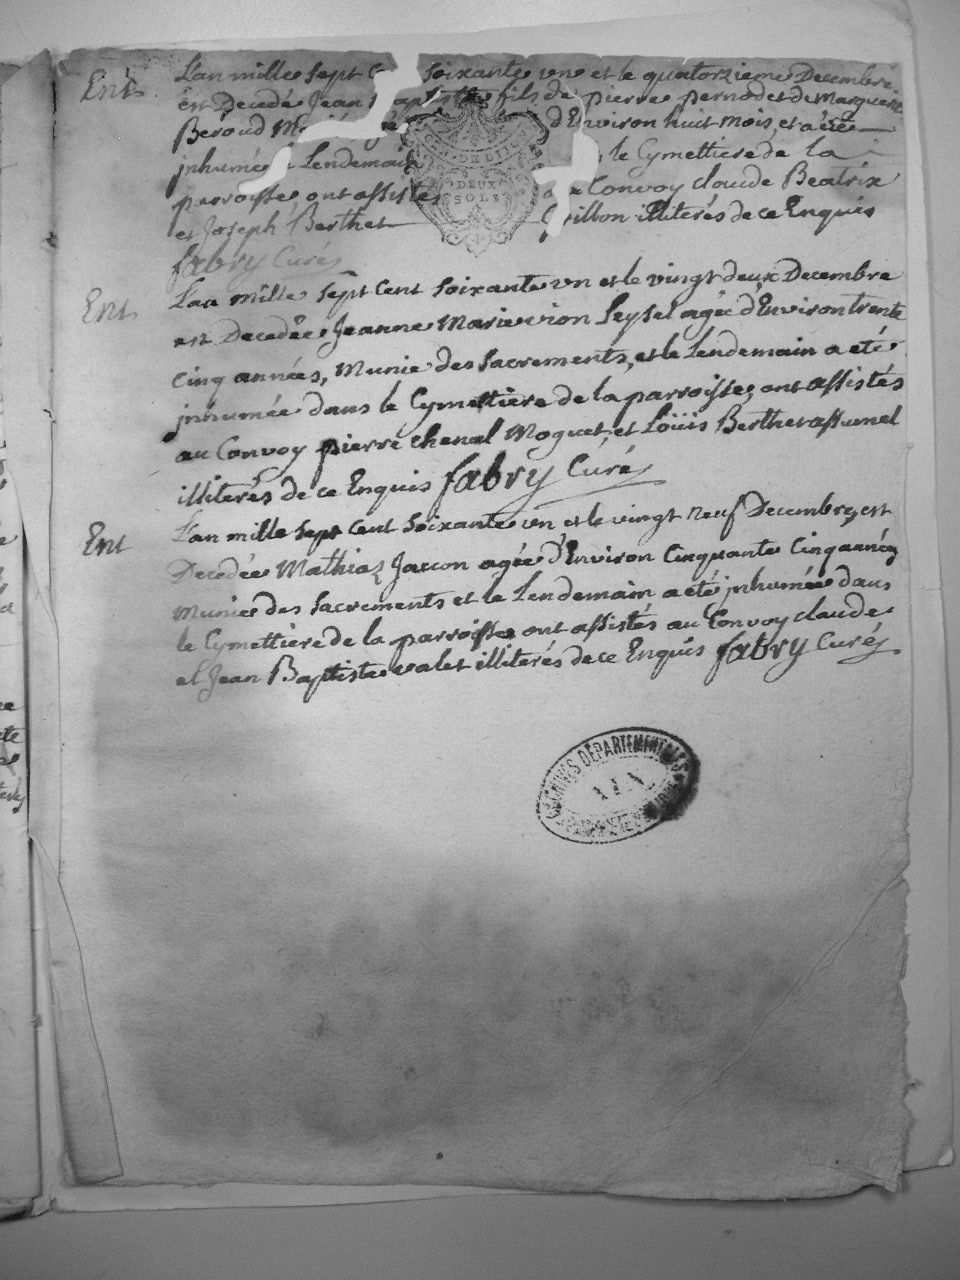 Ent.
L'an mille sept C soixante un et le quatorzieme Decembre
est Decedé Jean Baptiste fils de pierre pernod et de Marguerite
Beroud d'Environ huit mois, et a été
jnhumé le Lendemain le Cymettiere de la
parroisse ont assistés Convoy claude Beatrix
et Joseph Berthet illiterés de ce Enquis
fabry Curé
DEUX
SOLS
Ent.
L'an mille sept Cent soixante un et le vingt deux Decembre
est Decedée Jeanne Marie vion Leysel agée d'Environ trente
cinq années, Munie des Sacrements, et le Lendemain a eté
jnhumée dans le Cymettiere de la parroisse, ont assistés
au Convoy pierre chenal Moguet, et Loüis Berthet assumel
illiterés de ce Enquis fabry Curé
Ent
L'an mille sept Cent soixante un et le vingt neuf Decembre, est
Decedée Mathiaz Jaccon agée d'Environ Cinquante Cinq années
Munie des Sacrements et le Lendemain a eté jnhumée dans
le Cymettiere de la parroisse ont assistés au Convoy claude
et Jean Baptiste valet illiterés de ce Enquis fabry Curé
ARCHIVES DÉPARTEMENTALES
AIN